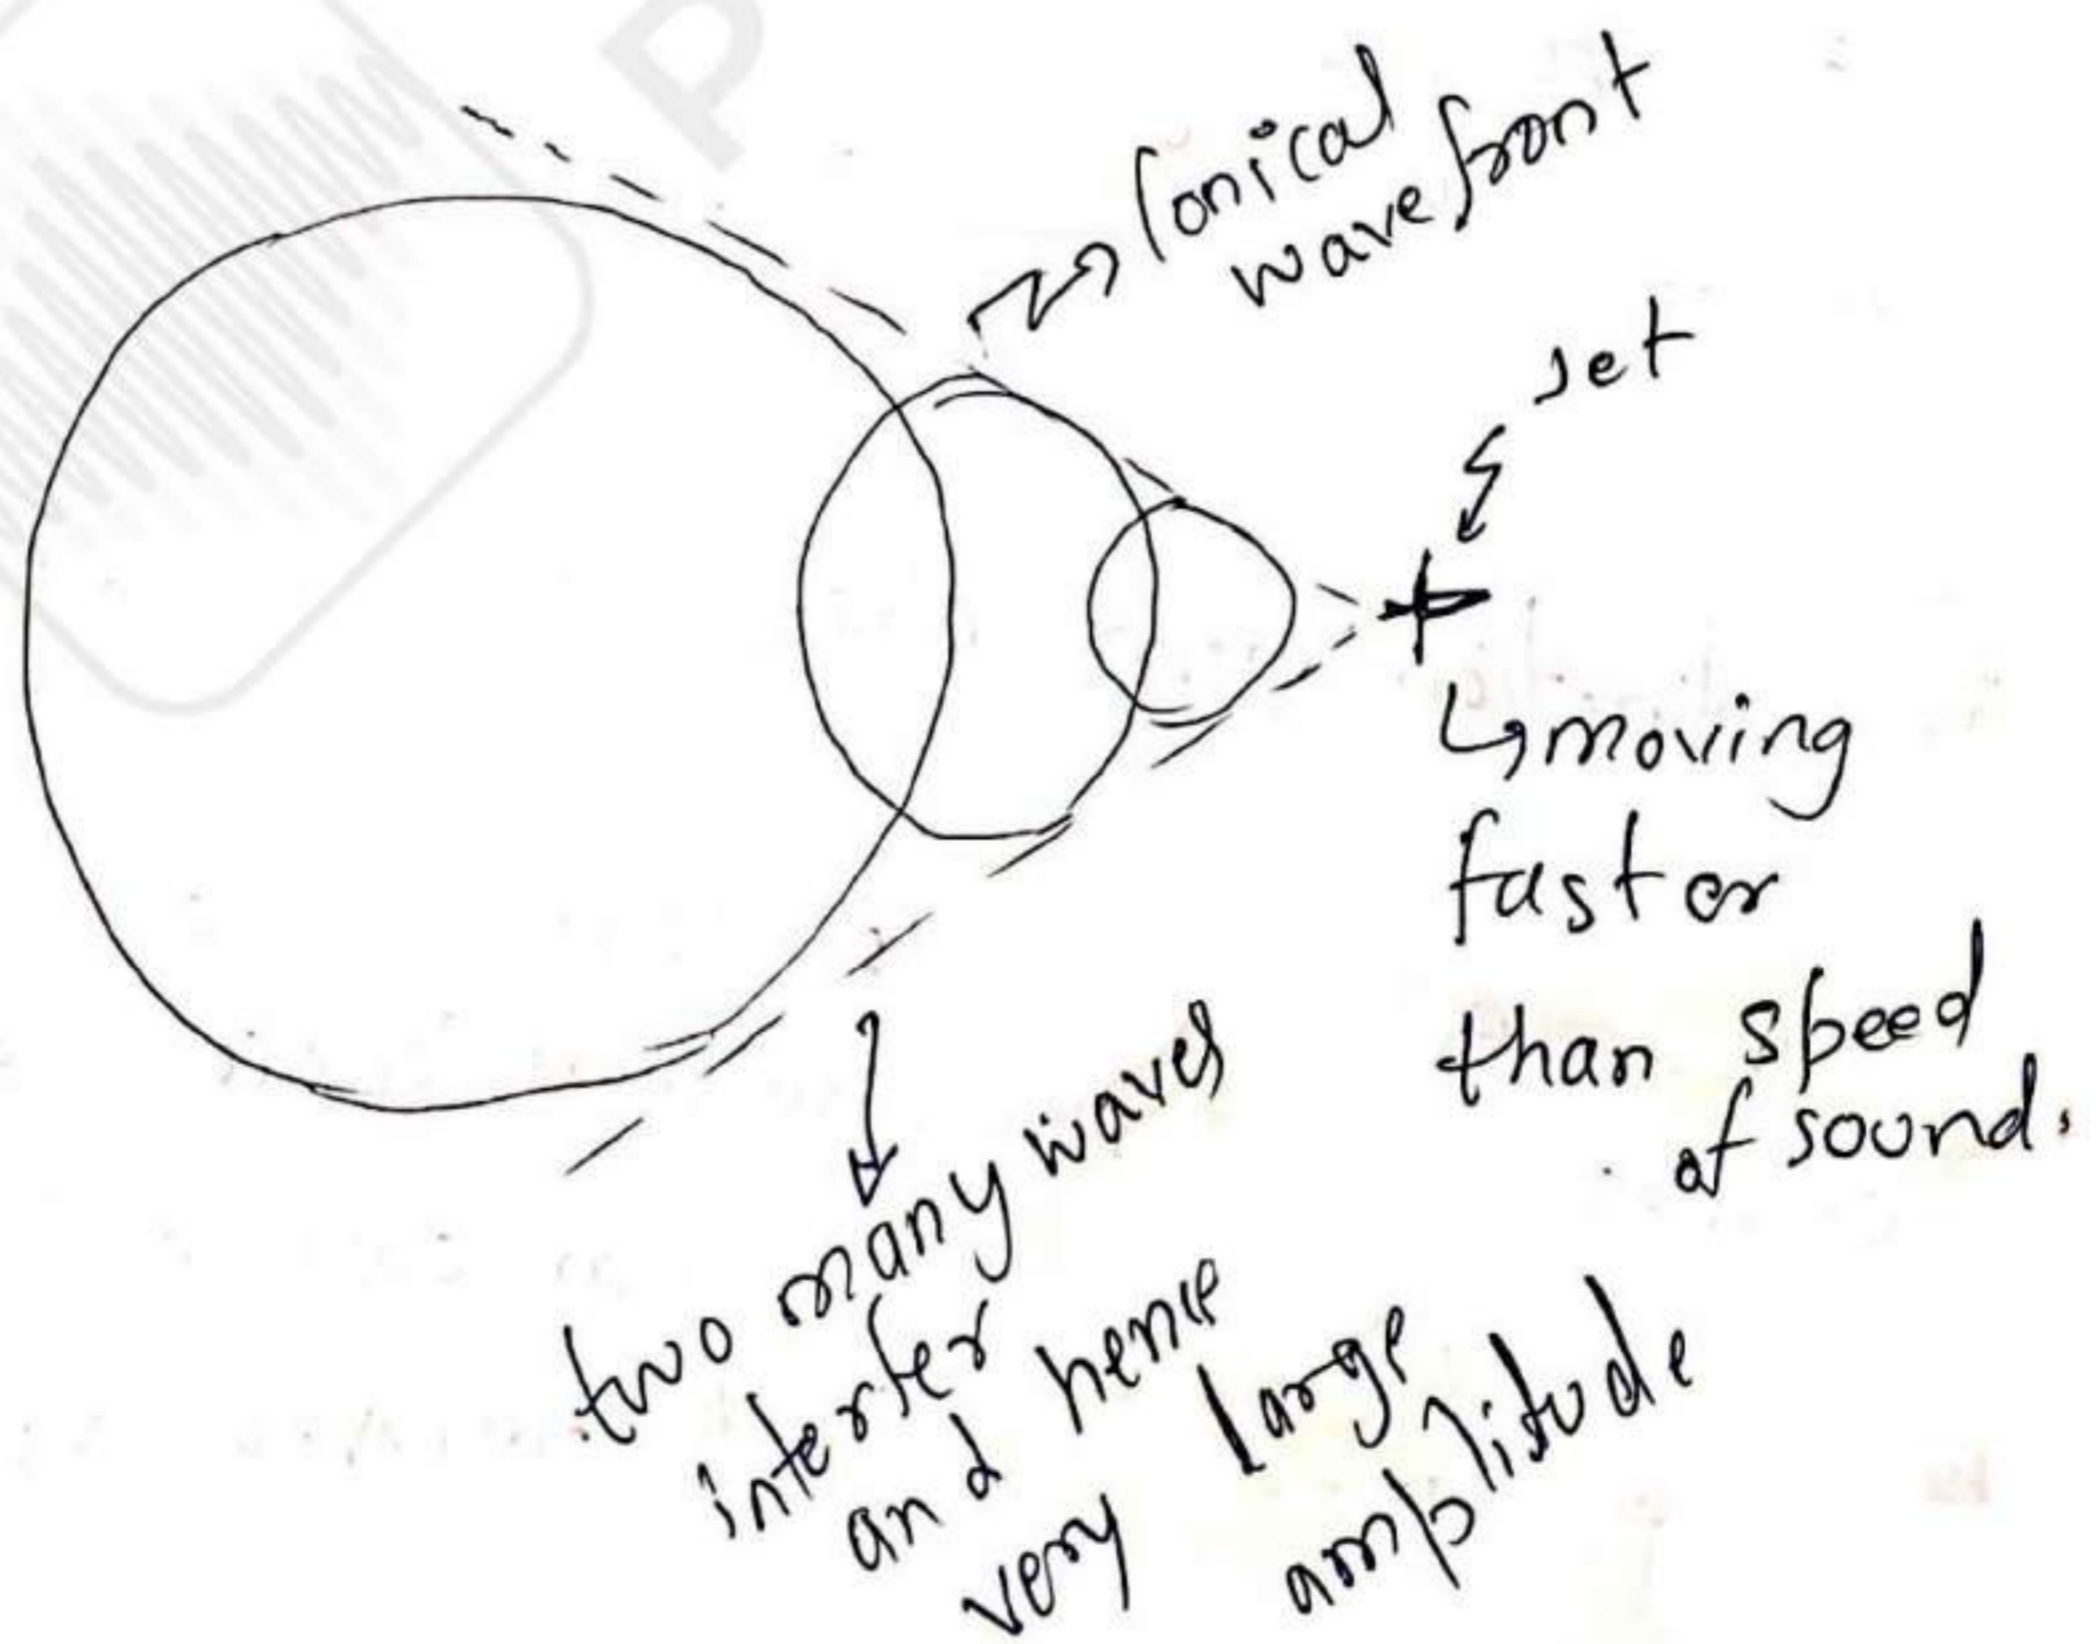 P
Conical
wavefront
Jet
↳ moving
faster
than speed
of sound.
two many waves
interfer
and hence
very large
amplitude